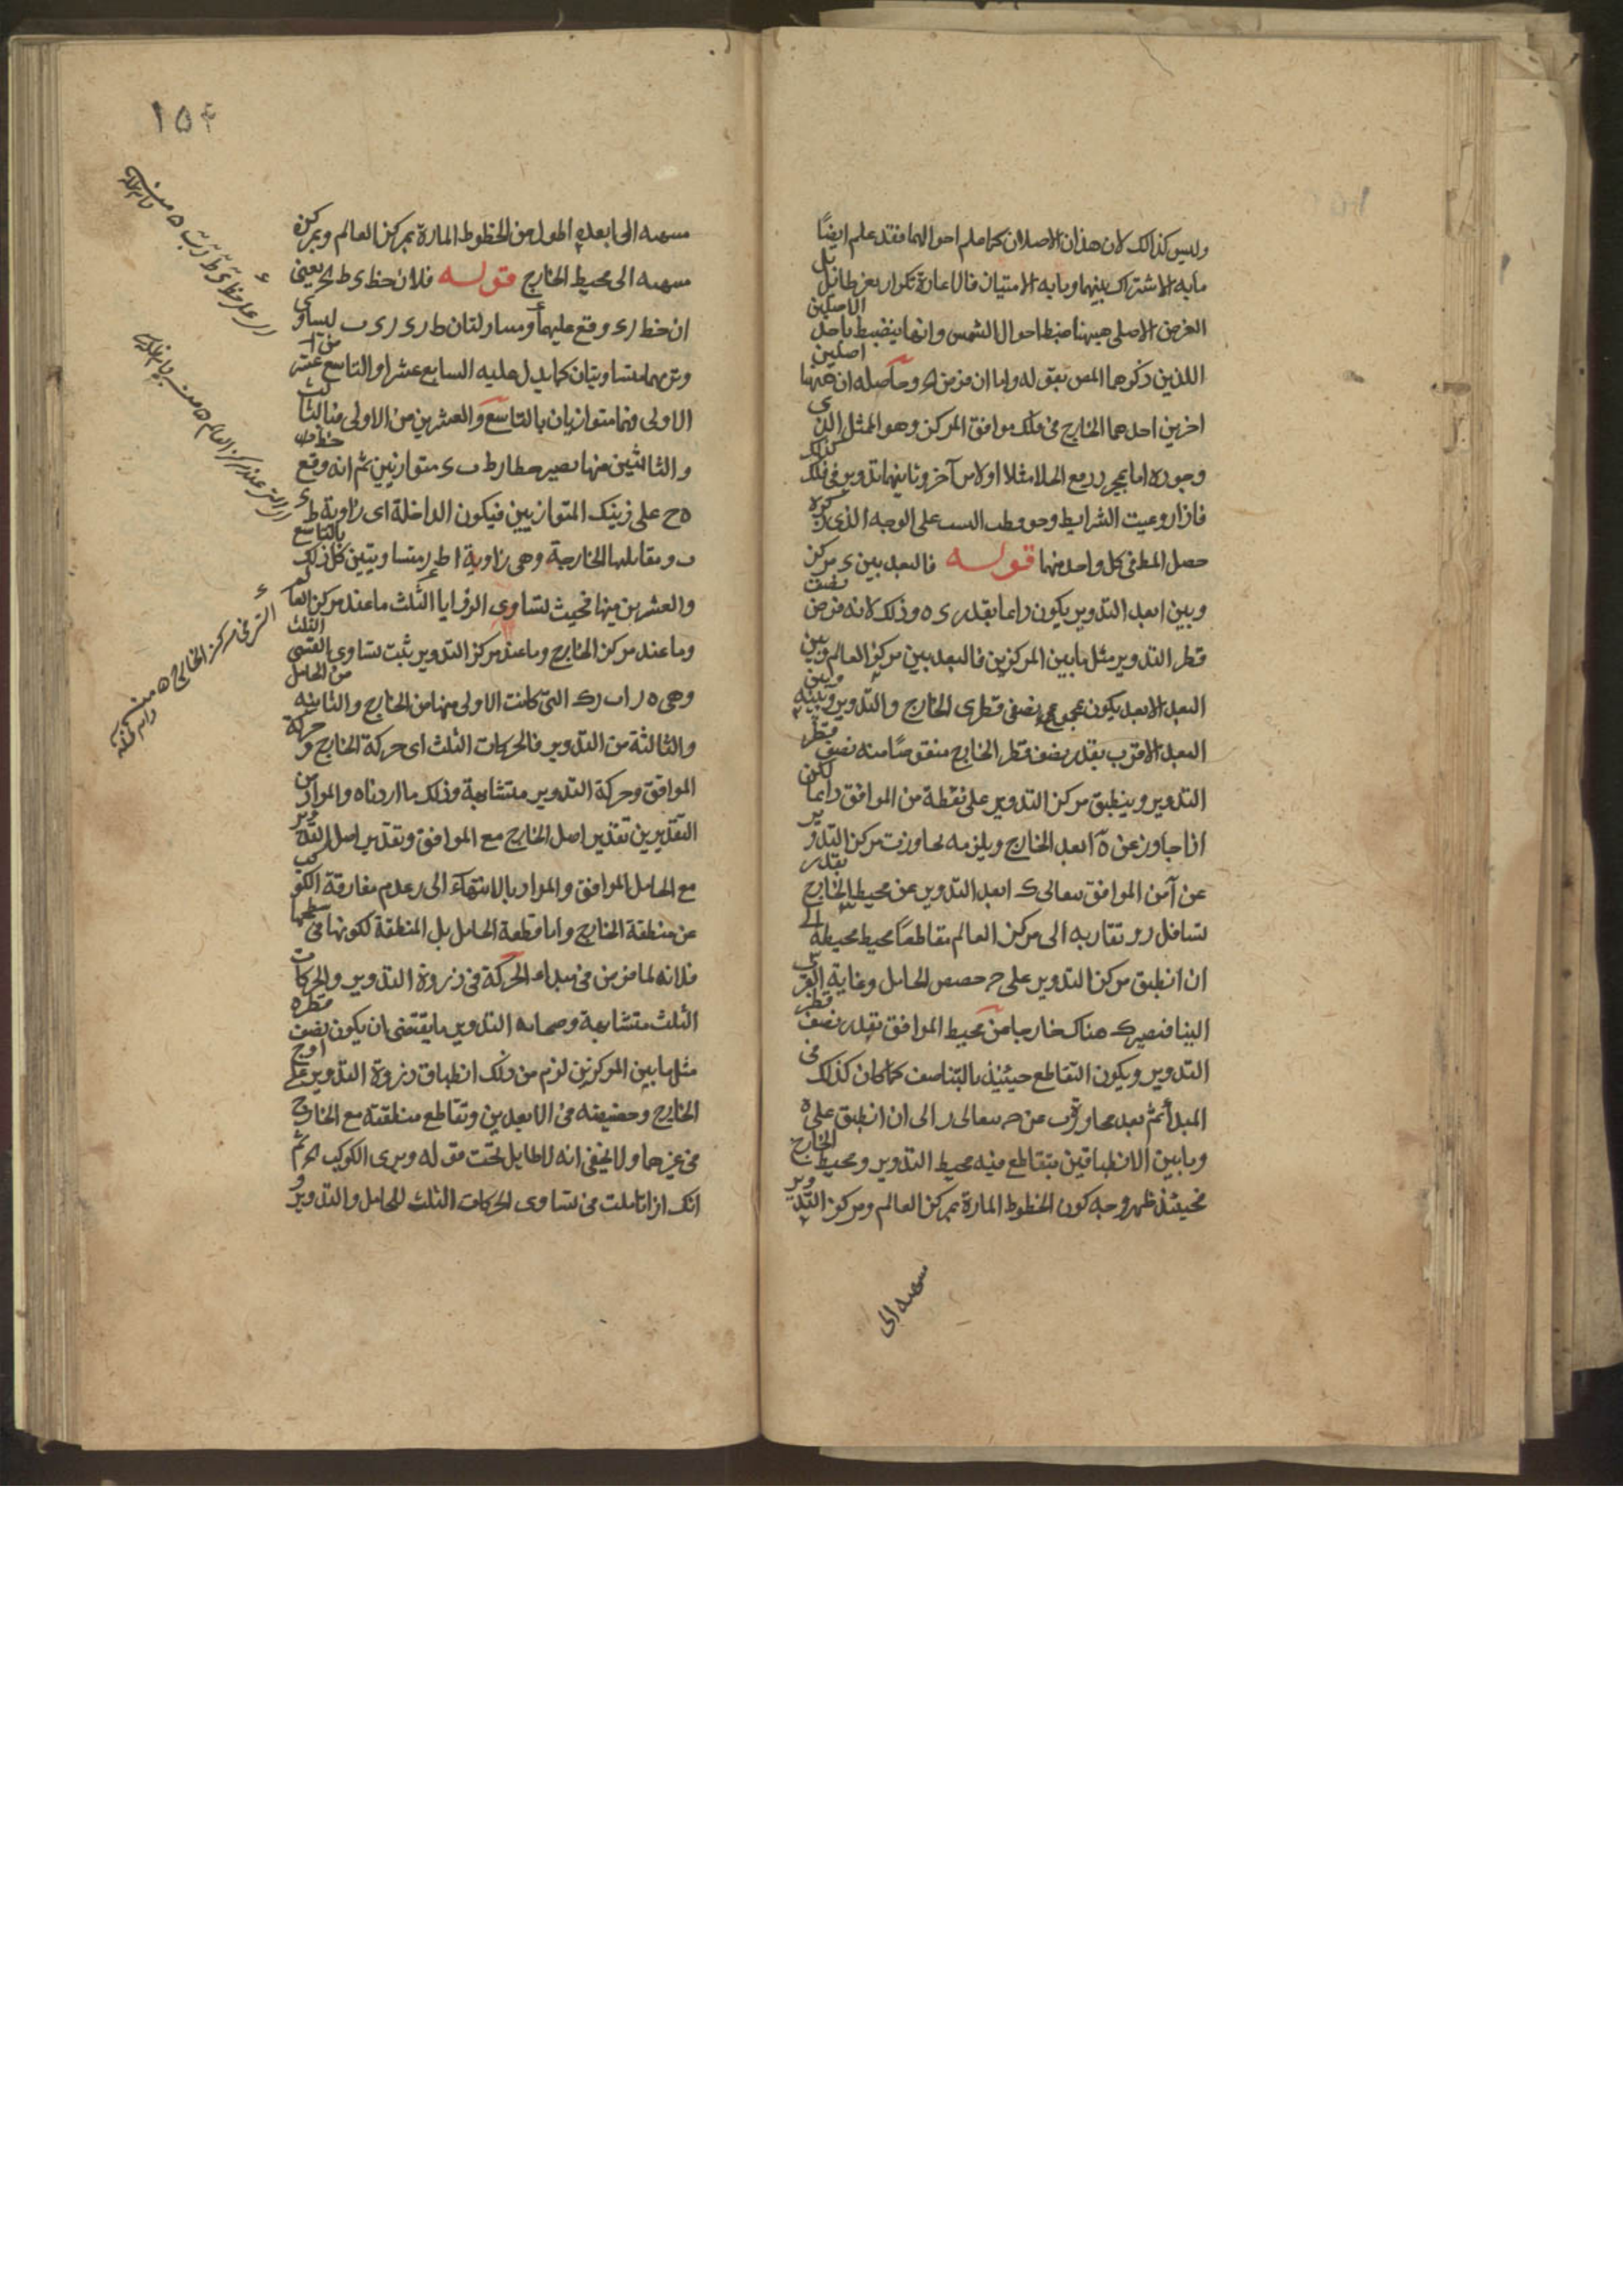 وليس كذلك لان هذان الاصلان كما علم احوالهما فقد علم ايضًا
مابه الاشتراك بينهما ومابه الامتياز فالاعادة تكرار بغير طائل بل
الغرض الاصلى ههنا ضبط احوال الشمس وانما ينضبط باحد الاصلين
اللذين ذكرهما المص بقوله واما ان فرض الخ وحاصله ان ههنا اصلين
اخرين احدهما الخارج فى فلك موافق المركز وهو الممثل الذى
وجوده اما بمجرد رفع الخلا مثلا اولامر آخر وثانيهما تدوير فى فلك كذلك
فاذا روعيت الشرايط وحو على الوجه الذى ذكره
حصل المط فى كل واحد منهما قوله فالبعد بين ى مركز
وبين ابعد التدوير يكون دائما بقدر ى ه وذلك لانه فرض نصف
قطر التدوير مثل مابين المركزين فالبعد بين مركز العالم وبين
البعد الابعد يكون مجموع نصفى قطرى الخارج والتدوير وبينه وبين
البعد الاقرب بقدر نصف قطر الخارج منقوصًا منه نصف قطر
التدوير وينطبق مركز التدوير على نقطة من الموافق دائما لكن
اذا جاوز عن ه آ ابعد الخارج ويلزمه تجاوزت مركز التدوير
عن آ من الموافق تعالى ك ابعد التدوير عن محيط الخارج بقدر
تسافل ر وتقاربه الى مركز العالم مقاطعًا محيط محيطه الى
ان انطبق مركز التدوير على ح حضيض الحامل وغاية القرب
الينا فتصير ك هناك خارجا من محيط الموافق بقدر نصف قطر
التدوير ويكون التقاطع حينئذ بالتناصف كما كان كذلك فى
المبدأ ثم بعد مجاوزة ب عن ح تعالى ر الى ان انطبق على ه
ومابين الانطباقين يتقاطع فيه محيط التدوير ومحيط الخارج
فحينئذ ظهر وجه كون الخطوط المارة بمركز العالم ومركز التدوير
سهمه الى
١٥٤
سهمه الى ابعده اطول من الخطوط المارة بمركز العالم وبمركز
سهمه الى محيط الخارج قوله فلان خط ى ط الخ يعنى
ان خط ر ى وقع عليهما ومتبادلتان ط ر ى ر ى ب لتساوى
وتريهما متساويتان كما يدل عليه السابع عشر او التاسع عشر من
الاولى فهما متوازيان بالتاسع والعشرين من الاولى فبالثالث
والثالثين منها يصير خطا ر ط ب ى متوازيين ثم انه وقع خط
ه ح على ذينك المتوازيين فيكون الداخلة اى زاوية ط ى
ب ومقابلها الخارجة وهى زاوية ا ط ر متساويتين كل ذلك بالتاسع
والعشرين منها فحيث تساوى الزوايا الثلث ماعند مركز العالم
وماعند مركز الخارج وماعند مركز التدوير يثبت تساوى القسى الثلث
وهى ه ر ا ب ر ك التى كانت الاولى منها من الخارج والثانية من الحامل
والثالثة من التدوير فالحركات الثلث اى حركة الخارج وحركة
الموافق وحركة التدوير متشابهة وذلك ما اردناه والمراد من
التقديرين تقدير اصل الخارج مع الموافق وتقدير اصل التدوير
مع الحامل الموافق والمراد بالانتهاء الى ر عدم مفارقة الكوكب
عن منطقة الخارج واما قطعة الحامل بل المنطقة لكونها فى سطحها
فلانه لما فرض فى مبداء الحركة فى ذروة التدوير والحركات
الثلث متشابهة وصحابة التدوير مايقتضى ان يكون نصف قطره
مثل مابين المركزين لزم من ذلك انطباق ذروة التدوير على اوج
الخارج وحضيضه فى الابعدين وتقاطع منطقته مع الخارج
فى غيرهما ولا يخفى انه لا طايل تحت قوله ويرى الكوكب الخ ثم
انك اذا تاملت فى تساوى الحركات الثلث للحامل والتدوير و